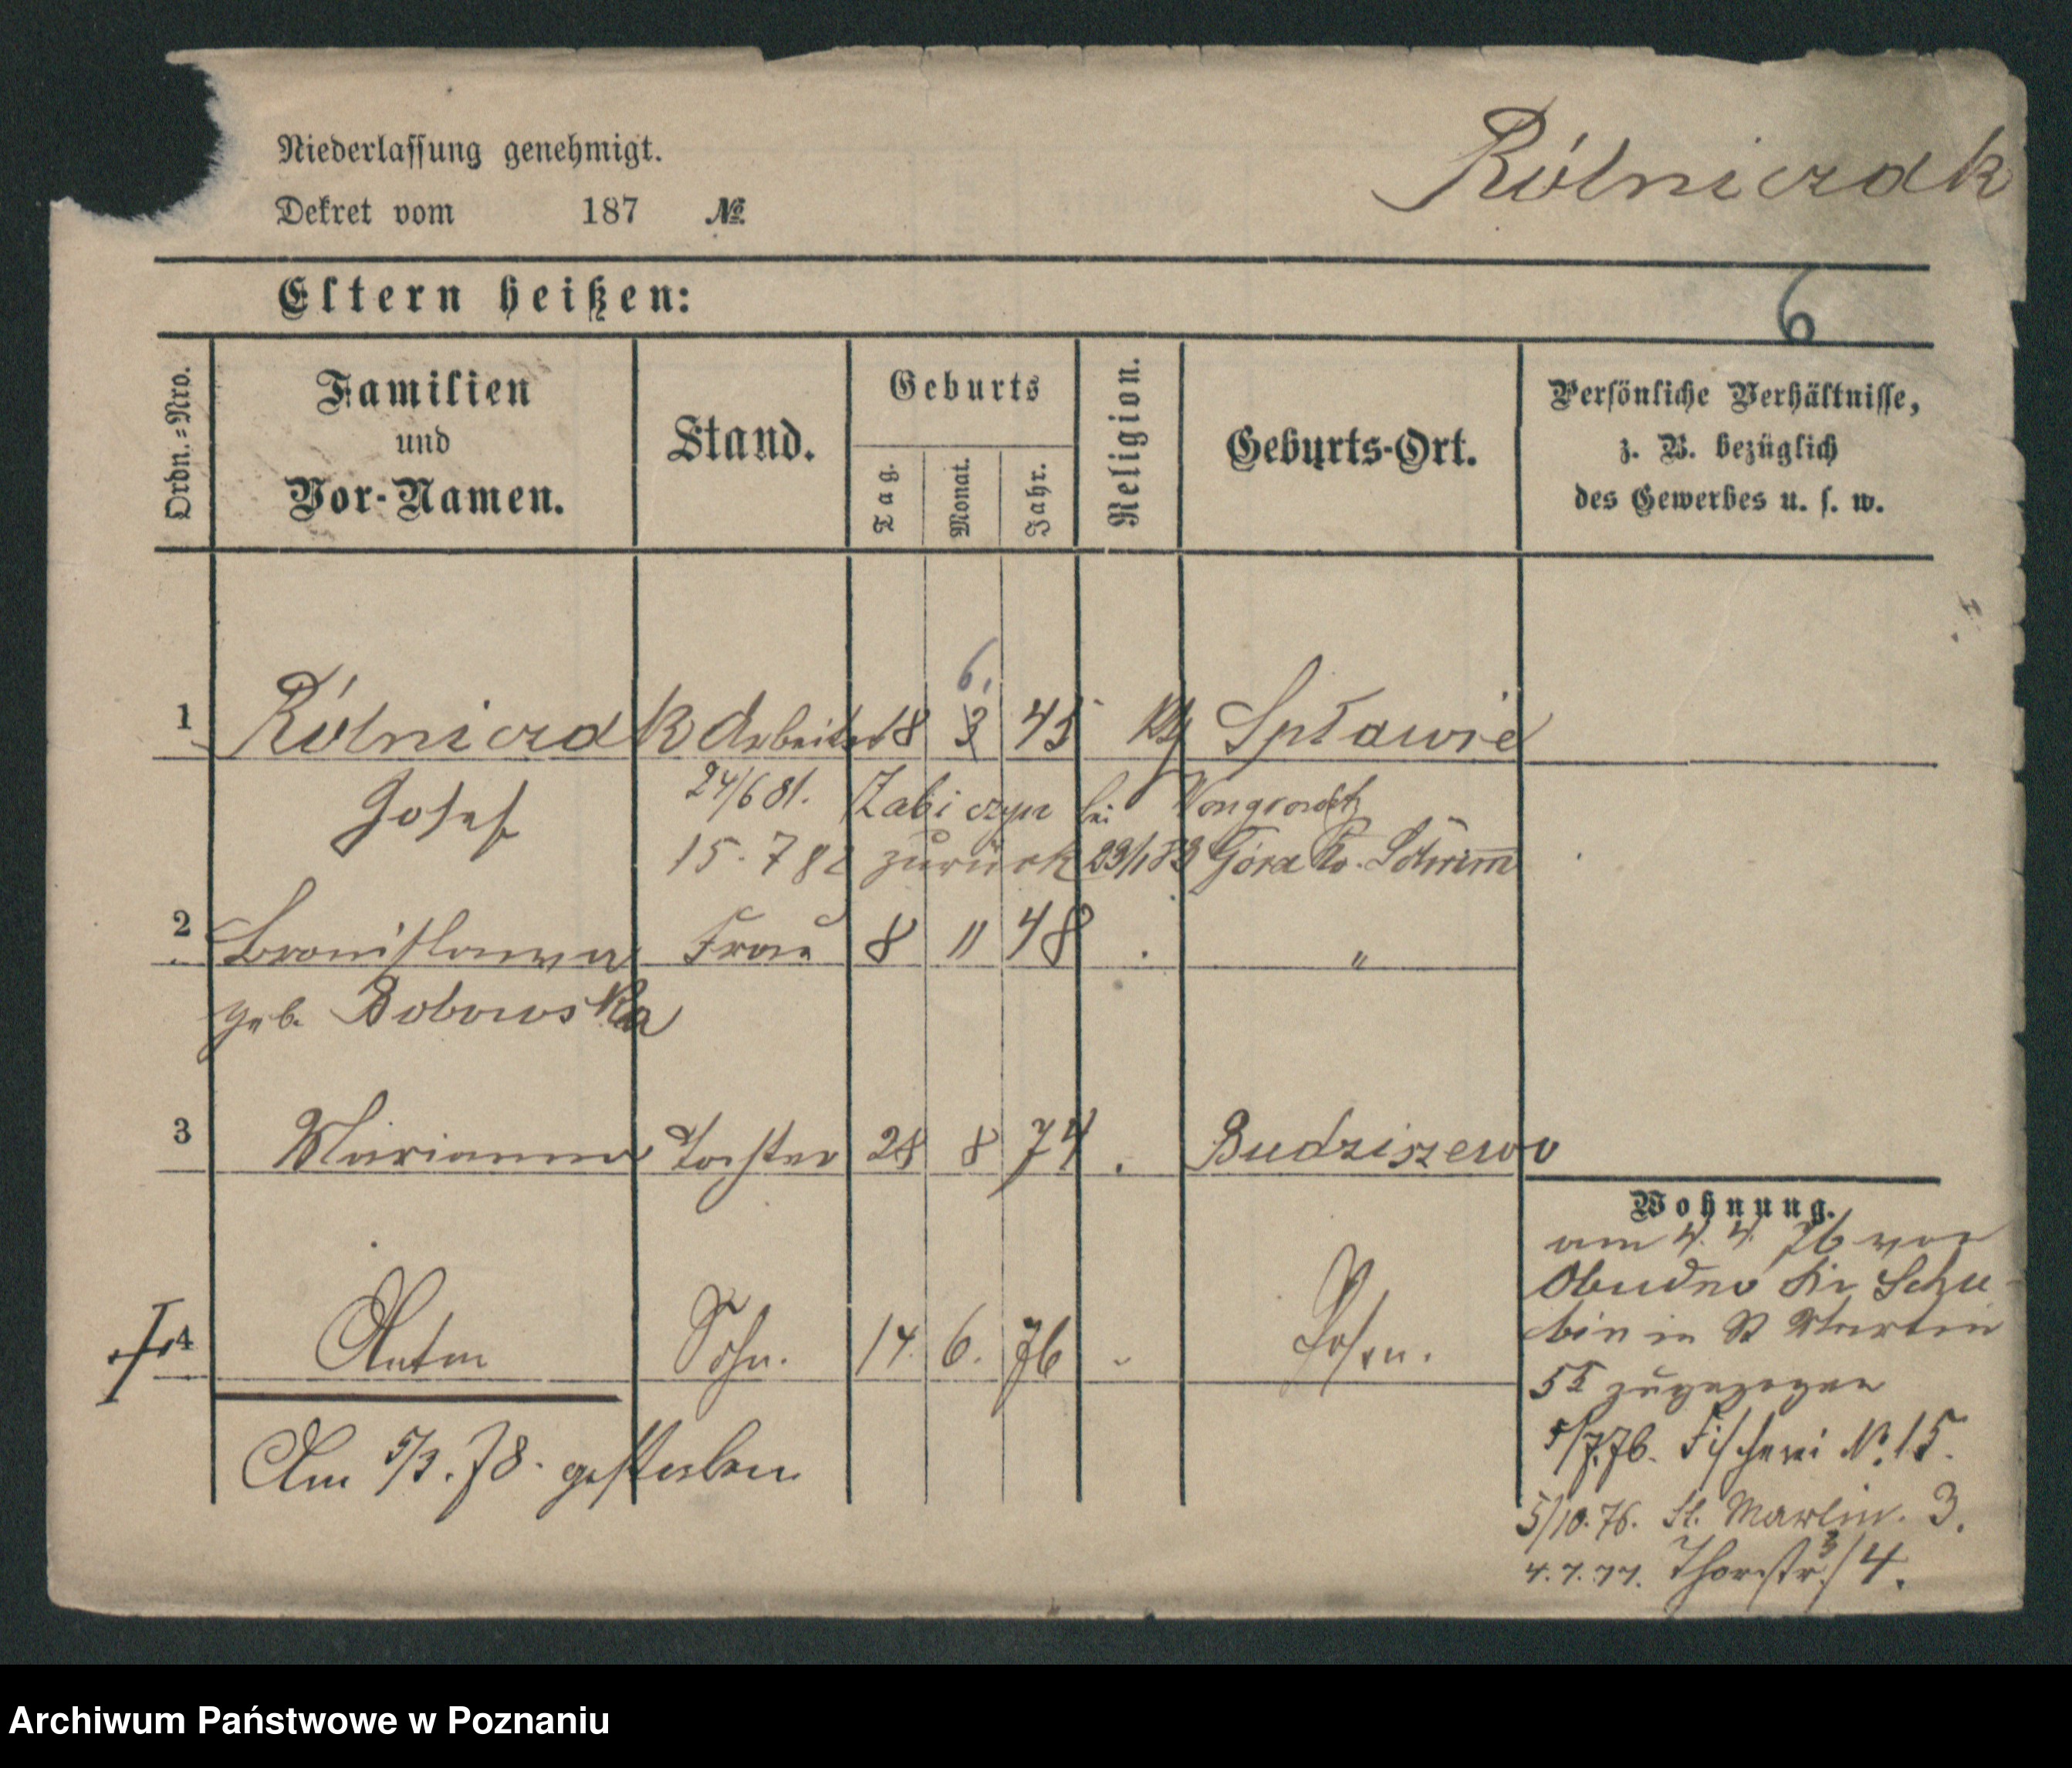 Niederlassung genehmigt.
Rólniczak
Dekret vom 187 №
Eltern heißen:
6
Ordn.-Nro.
Familien
und
Vor-Namen.
Stand.
Geburts
Tag.
Monat.
Jahr.
Religion.
Geburts-Ort.
Persönliche Verhältnisse,
z. B. bezüglich
des Gewerbes u. s. w.
6.
1 Rólniczak Arbeiter 18 3 45 kth Spławie
Josef
24/6 81. Zabiczyn bei Wongrowitz
15. 7 82 zurück 23/1 83 Góra Kr. Schrimm
2 Bronislawa Frau 8 11 48 . "
geb. Bobowska
3 Marianna Tochter 28 8 74 . Budziszewo
4 Anton Sohn. 14. 6. 76 " Posen.
Am 5/3. 78. gestorben
Wohnung.
am 4. 4. 76 von
Obudno Kr Schu-
bin in St Martin
55 zugezogen
5/7.76. Fischerei № 15.
5/10. 76. St. Martin. 3.
4. 7. 77. Thorstr. 3/4.
Archiwum Państwowe w Poznaniu